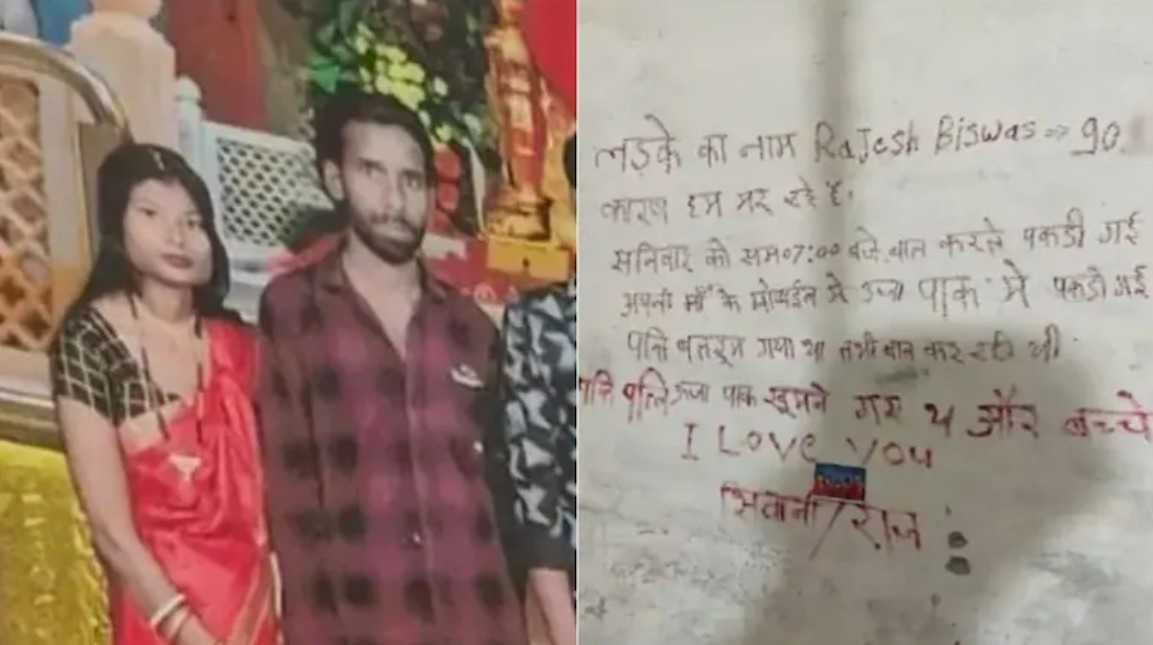 लड़के का नाम Rajesh Biswas => 90
कारण हम मर रहे है।
सनिवार को सम07:00 बजे बात करते पकडी गई
अपनी माँ के मोबाईल से उर्जा पाक में पकडी गई
पति बातरूम गया था तभी बात कर रही थी
पति पत्नि उर्जा पाक घूमने गए थे और बच्चे
I Love You
शिवानी/राज